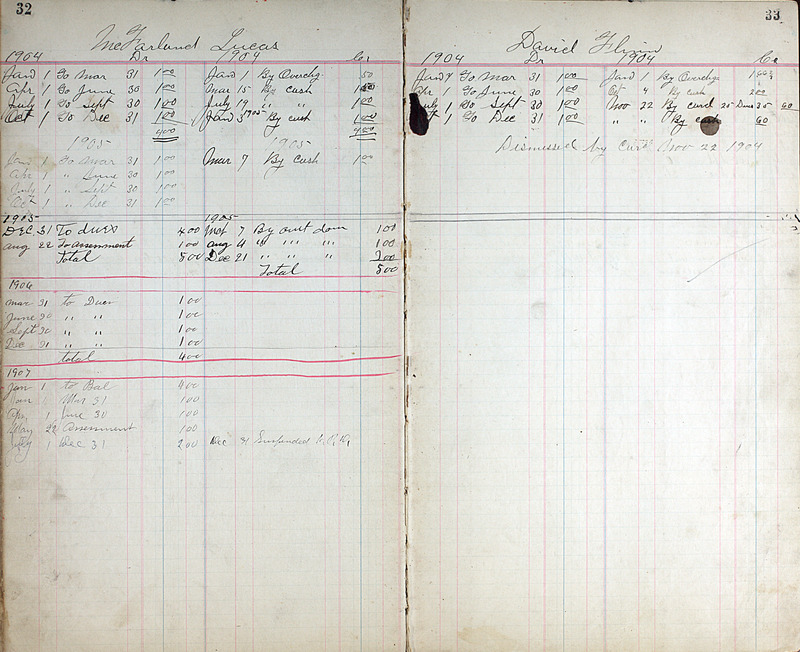 32
McFarland Lucas
1904 Dr 1904 Cr
Jan 1 To Mar 31 1 00 Jan 1 By Overchg 50
Apr 1 To June 30 1 00 Mar 15 By Cash
July 1 To Sept 30 1 00 July 19 " " 1 00
Oct 1 To Dec 31 1 00 Jan 3 1905 By Cash 1 00
4 00 4 00
1905 1905
Jan 1 To Mar 31 1 00 Mar 7 By Cash 1 00
Apr 1 " June 30 1 00
July 1 " Sept 30 1 00
Oct 1 " Dec 31 1 00
1905 1905
DEC 31 To dues 4 00 Mar 7 By amt 1 00
Aug 22 To assessment 1 00 Aug 4 " " " 1 00
Total 5 00 Dec 21 " " "
Total 5 00
1906
Mar 31 to Dues 1 00
June 30 " " 1 00
Sept 30 " " 1 00
Dec 31 " " 1 00
total 4 00
1907
Jan 1 to Bal 4 00
Mar 31 1 00
Apr 1 June 30 1 00
May 22 Assessment 1 00
July 1 Dec 31 2 00 Dec 31 Suspended
33
David Flynn
1904 Dr 1904 Cr
Jan 1 To Mar 31 1 00 Jan 1 By Overchg
Apr 1 To June 30 1 00 Oct 4 By Cash 2 00
July 1 To Sept 30 1 00 Nov 22 By card 25 Dues 35 60
To Dec 31 1 00 " " By 60
Dismissed by Card Nov 22 1904